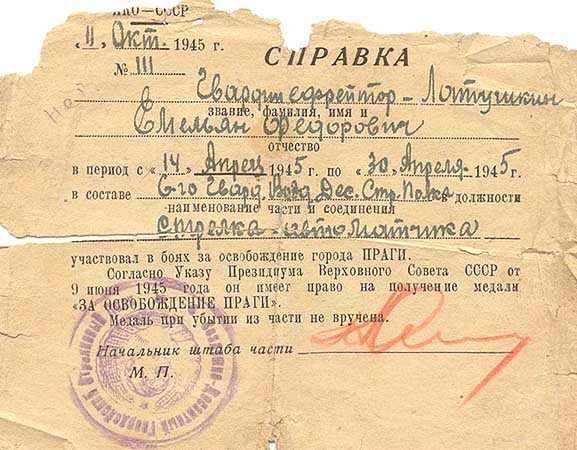 НКО—СССР
„11„ Окт. 1945 г.
СПРАВКА
№ 111
Гвардии ефрейтор - Латушкин
звание, фамилия, имя и
Емельян Федорович
отчество
в период с «14» Апреля 1945 г. по «30» Апреля 1945 г.
в составе 6-го Гвард. Возд. Дес. Стр. Полка в должности
наименование части и соединения
стрелка-автоматчика
участвовал в боях за освобождение города ПРАГИ.
Согласно Указу Президиума Верховного Совета СССР от
9 июня 1945 года он имеет право на получение медали
«ЗА ОСВОБОЖДЕНИЕ ПРАГИ».
Медаль при убытии из части не вручена.
Начальник штаба части
М. П.